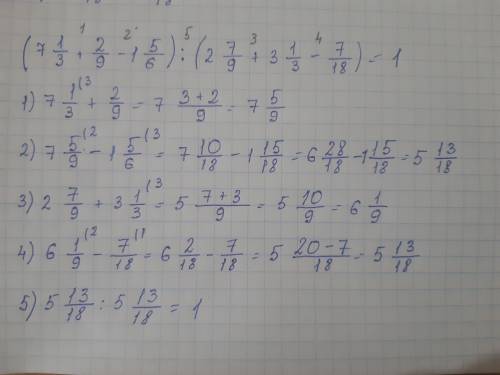 (7 1/3 + 2/9 - 1 5/6) : (2 7/9 + 3 1/3 - 7/18) = 1
1) 7 1/3 (3 + 2/9 = 7 (3+2)/9 = 7 5/9
2) 7 5/9 (2 - 1 5/6 (3 = 7 10/18 - 1 15/18 = 6 28/18 - 1 15/18 = 5 13/18
3) 2 7/9 + 3 1/3 (3 = 5 (7+3)/9 = 5 10/9 = 6 1/9
4) 6 1/9 (2 - 7/18 (1 = 6 2/18 - 7/18 = 5 (20-7)/18 = 5 13/18
5) 5 13/18 : 5 13/18 = 1